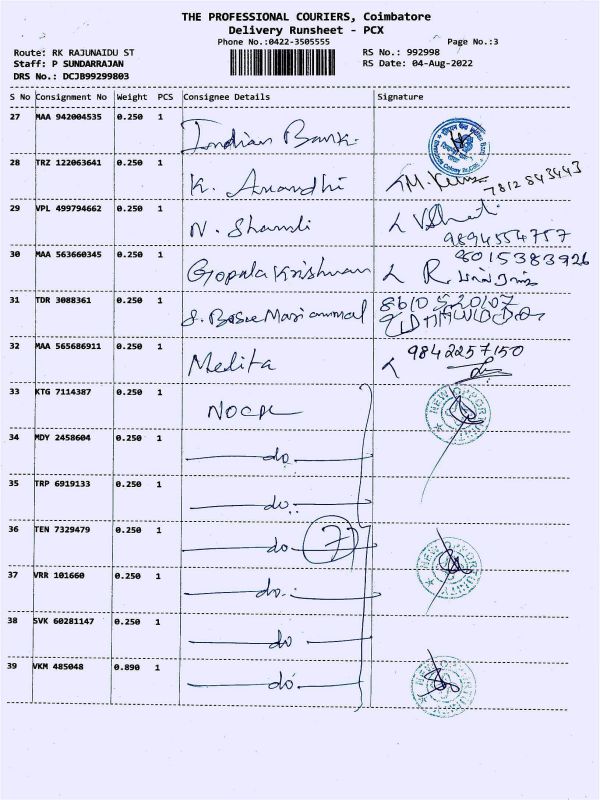 THE PROFESSIONAL COURIERS, Coimbatore
Delivery Runsheet - PCX
Phone No.:0422-3505555 Page No.:3
Route: RK RAJUNAIDU ST RS No.: 992998
Staff: P SUNDARRAJAN RS Date: 04-Aug-2022
DRS No.: DCJB99299803
S No Consignment No Weight PCS Consignee Details Signature
27 MAA 942004535 0.250 1 Indian Bank
28 TRZ 122063641 0.250 1 K. Anandhi 7812843443
29 VPL 499794662 0.250 1 N. Shamli 9894554757
30 MAA 563660345 0.250 1 Gopalakrishnan 8015383926
31 TDR 3088361 0.250 1 8610520107
32 MAA 565686911 0.250 1 Melita 9842257150
33 KTG 7114387 0.250 1
34 MDY 2458604 0.250 1 do
35 TRP 6919133 0.250 1 do
36 TEN 7329479 0.250 1 do 7
37 VRR 101660 0.250 1 do
38 SVK 60281147 0.250 1 do
39 VKM 485048 0.890 1 do